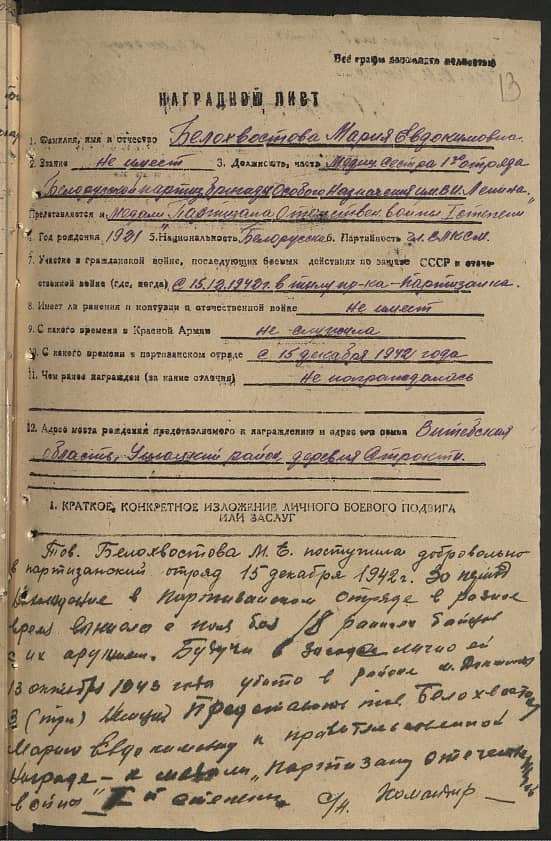 Все графы заполнять полностью
13
НАГРАДНОЙ ЛИСТ
1. Фамилия, имя и отчество Белохвостова Мария Евдокимовна.
2. Звание Не имеет 3. Должность, часть Медиц. Сестра 1го отряда
Белорусской партиз. бригады Особого Назначения им. В.И. Ленина.
Представляется к медали "Партизана Отечествен войны I степени
4. Год рождения 1921 5. Национальность Белорусска 6. Партийность Чл. ВЛКСМ.
7. Участие в гражданской войне, последующих боевых действиях по защите СССР и отече-
ственной войне (где, когда) с 15.12.1942г. в тылу пр-ка - Партизанка.
8. Имеет ли ранения и контузии в отечественной войне Не имеет
9. С какого времени в Красной Армии не служила
10. С какого времени в партизанском отряде с 15 декабря 1942 года
11. Чем ранее награжден (за какие отличия) Не награждалась
12. Адрес места рождения представляемого к награждению и адрес его семьи Витебская
область, Ушачский район деревня
1. КРАТКОЕ, КОНКРЕТНОЕ ИЗЛОЖЕНИЕ ЛИЧНОГО БОЕВОГО ПОДВИГА
ИЛИ ЗАСЛУГ
Тов. Белохвостова М. Е. поступила добровольно
в партизанский отряд 15 декабря 1942г. За период
в партизанском отряде в разное
время вынесла с поля боя 18 раненых бойцов
с их оружием. Будучи в засаде лично ей
13 октября 1943 года убито в районе м.
3 (три) немца Представляю тов. Белохвостову
Марию Евдокимовну к правительственной
награде - к медали "Партизану отечествен
войны" I й степени. Командир